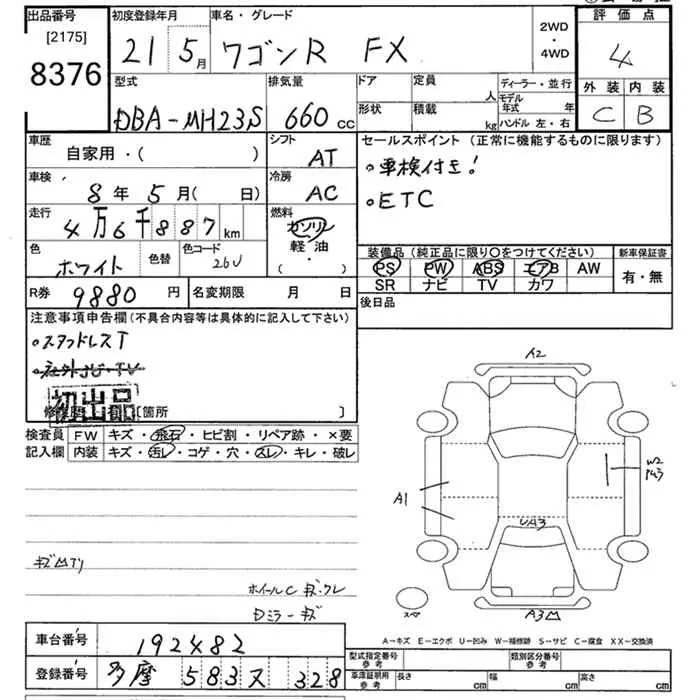 出品番号 初度登録年月 車名・グレード 2WD・4WD 評価点
[2175]
8376 21 5月 ワゴンR FX 4
型式 排気量 ドア 定員 人 ディーラー・並行 外装 内装
DBA-MH23S 660cc 形状 積載 kg モデル年式 年 ハンドル 左・右 C B
車歴 自家用・( ) シフト AT セールスポイント(正常に機能するものに限ります)
車検 8年 5月( 日) 冷房 AC 。車検付き!
走行 4万6千887km 燃料 ガソリン 。ETC
軽・油
( ・ )
色 ホワイト 色替 色コード 26U
装備品(純正品に限り〇をつけてください) 新車保証書
PS PW ABS エアB AW 有・無
SR ナビ TV カワ
R券 9880円 名変期限 月 日 後日品
注意事項申告欄(不具合内容等は具体的に記入して下さい)
。スタッドレスT
。社外JU・TV
初出品
[箇所 ]
検査員 FW キズ・飛石・ヒビ割・リペア跡・×要
記入欄 内装 キズ・汚レ・コゲ・穴・スレ・キレ・破レ
A2
A1
W2
UA3
A3
スペ
ホイールC キズ・クレ
Dミラーキズ
A-キズ E-エクボ U-凹み W-補修跡 S-サビ C-腐食 XX-交換済
車台番号 192482
登録番号 多摩 583 ヌ 328
型式指定番号 参考 類別区分番号 参考
車庫証明用 参考 長さ cm 幅 cm 高さ cm